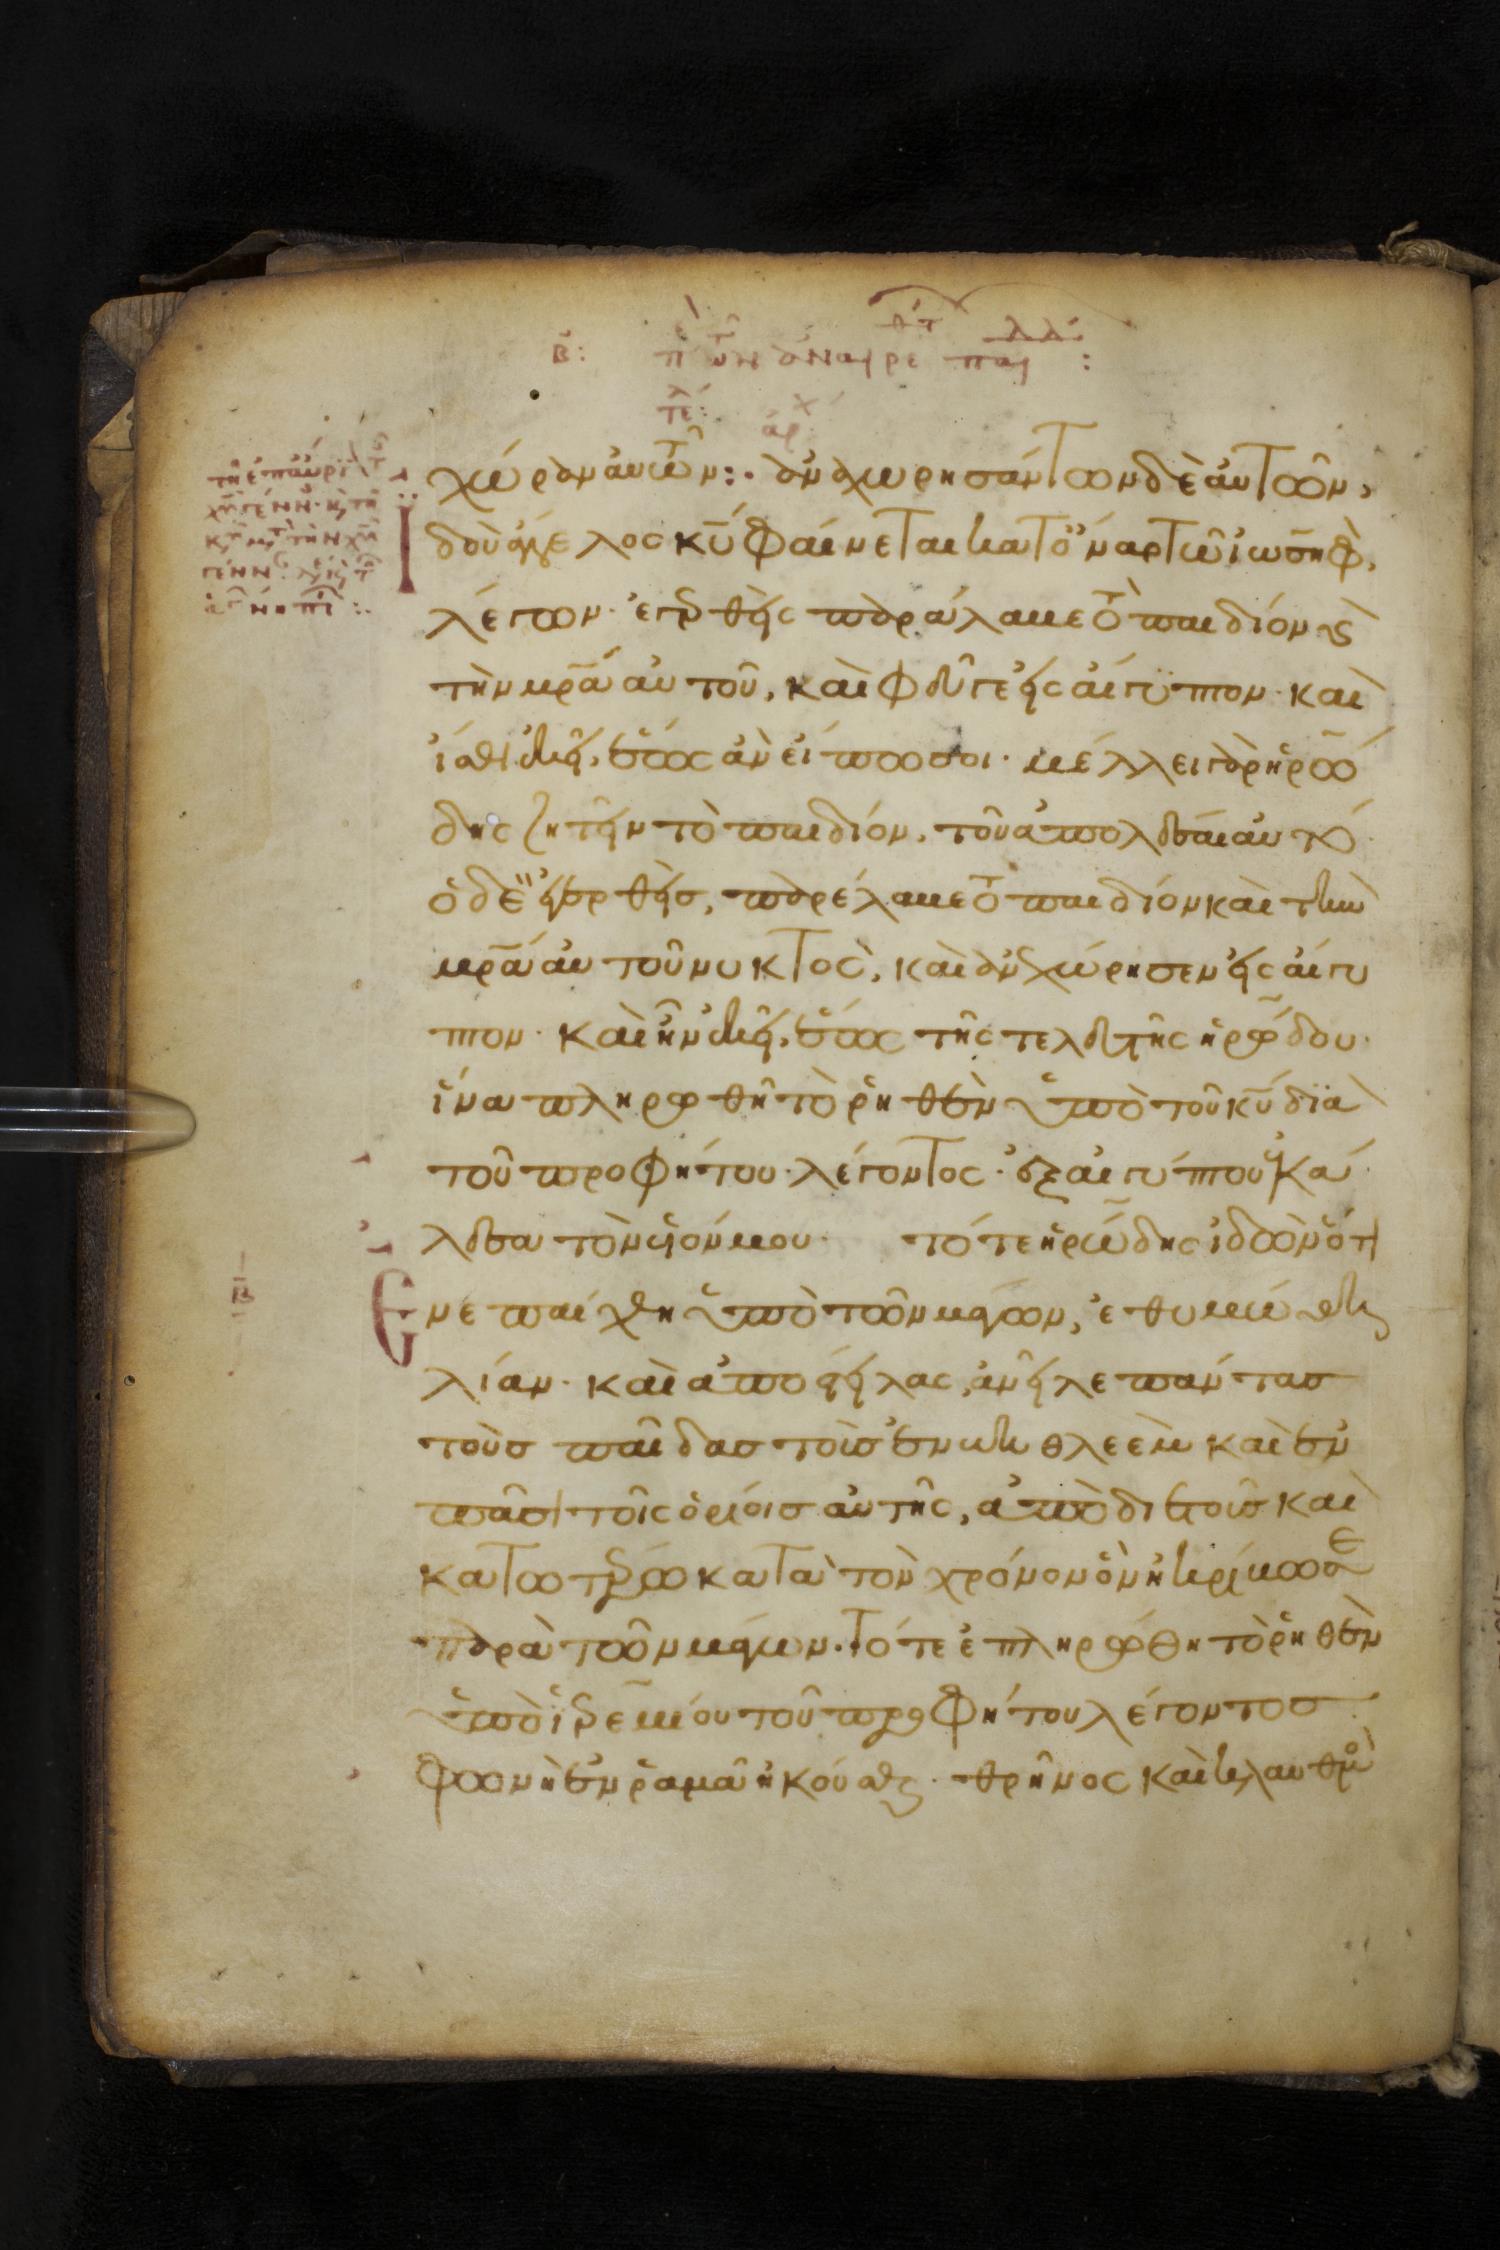 β: π τῶν ἀναιρεθέντ παι
τέλ: ἀρχ
χώραν αὐτῶν:· ἀναχωρησάντων δὲ αὐτῶν,
Ἰδοὺ ἄγγελος κυ φαίνεται κατ ὄναρ τῶ ἰωσηφ,
λέγων· ἐγερθεὶς παράλαβε τὸ παιδίον κ
τὴν μρα αὐτοῦ, καὶ φεῦγε εἰς αἴγυπτον· καὶ
ἴσθι ἐκεῖ, ἕως ἂν εἴπω σοι· μέλλει γὰρ ἡρώ
δης ζητεῖν τὸ παιδίον, τοῦ ἀπολέσαι αὐτό·
ὁ δὲ ἐγερθεὶς, παρέλαβε τὸ παιδίον καὶ τὴν
μρα αὐτοῦ νυκτὸς, καὶ ἀνεχώρησεν εἰς αἴγυ
πτον· καὶ ἦν ἐκεῖ, ἕως τῆς τελευτῆς ἡρώδου·
ἵνα πληρωθῆ τὸ ῥηθὲν ὑπὸ τοῦ κυ διὰ
τοῦ προφήτου λέγοντος· ἐξ αἰγύπτου ἐκά
λεσα τὸν υἱόν μου· τότε ἡρώδης ἰδὼν ὅτι
Ἐνεπαίχθη ὑπὸ τῶν μάγων, ἐθυμώθη
λίαν· καὶ ἀποστείλας, ἀνεῖλε πάντας
τοὺς παῖδας τοὺς ἐν βηθλεὲμ καὶ ἐν
πᾶσι τοῖς ὁρίοις αὐτῆς, ἀπὸ διετοῦς καὶ
κατωτέρω κατὰ τὸν χρόνον ὃν ἠκρίβωσε
παρὰ τῶν μάγων. Τότε ἐπληρώθη τὸ ῥηθὲν
ὑπὸ ἱερεμίου τοῦ προφήτου λέγοντος
φωνὴ ἐν ῥαμᾶ ἠκούσθη· θρῆνος καὶ κλαυθμὸ